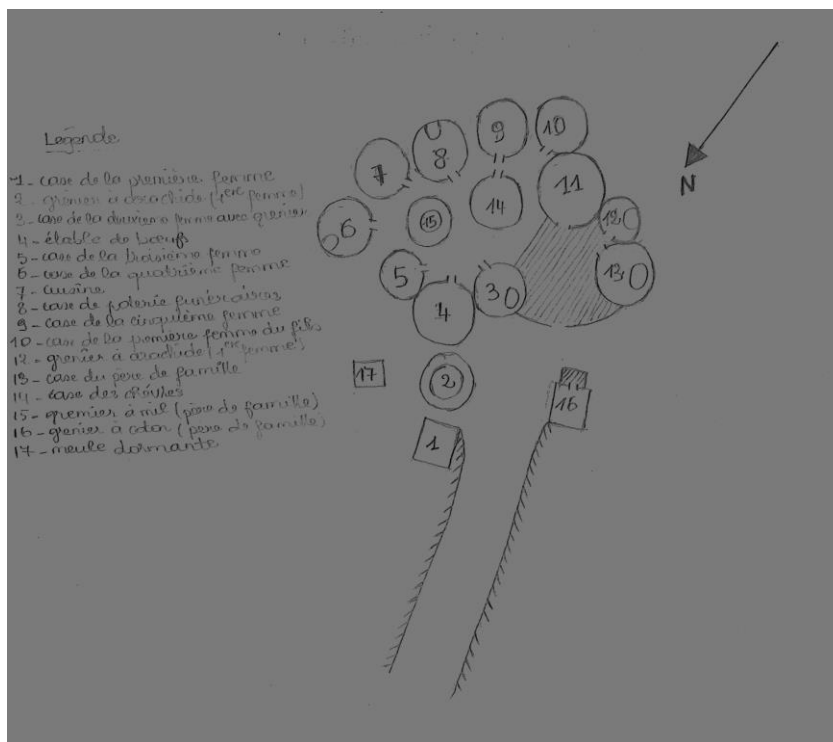 Légende
1- case de la première femme
2- grenier à arachide (1ere femme)
3- case de la deuxième femme avec grenier
4- étable de bœufs
5- case de la troisième femme
6- case de la quatrième femme
7- cuisine
8- case de poterie funéraires
9- case de la cinquième femme
10- case de la première femme du fils
12- grenier à arachide (1ere femme)
13- case du père de famille
14- case des chèvres
15- grenier à mil (père de famille)
16- grenier à coton (père de famille)
17- meule dormante
9
10
8
7
11
N
14
6
15
12
5
3
13
4
17
2
16
1